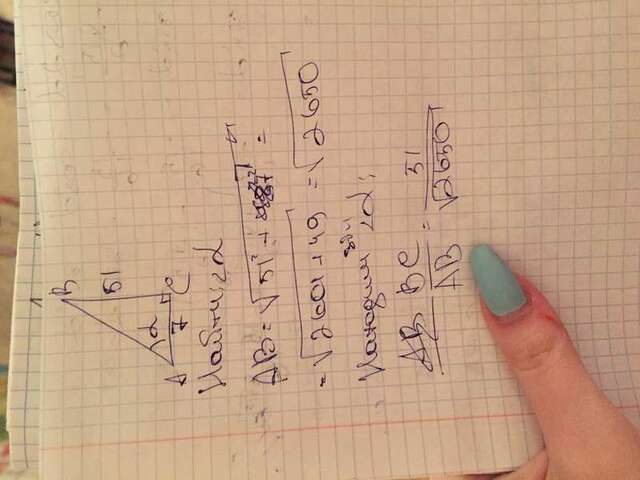 B
51
α
A 7 C
Найти ∠α
AB = √51² + 7² =
= √2601 + 49 = √2650
Находим ∠α:
AB BC / AB = 51 / √2650